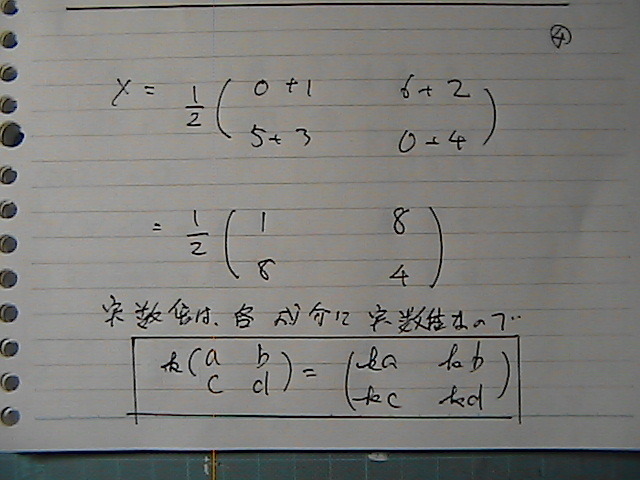 ④
X = 1/2 ( 0+1 6+2
5+3 0+4 )
= 1/2 ( 1 8
8 4 )
実数倍は、各成分に実数倍なので
k ( a b
c d ) = ( ka kb
kc kd )